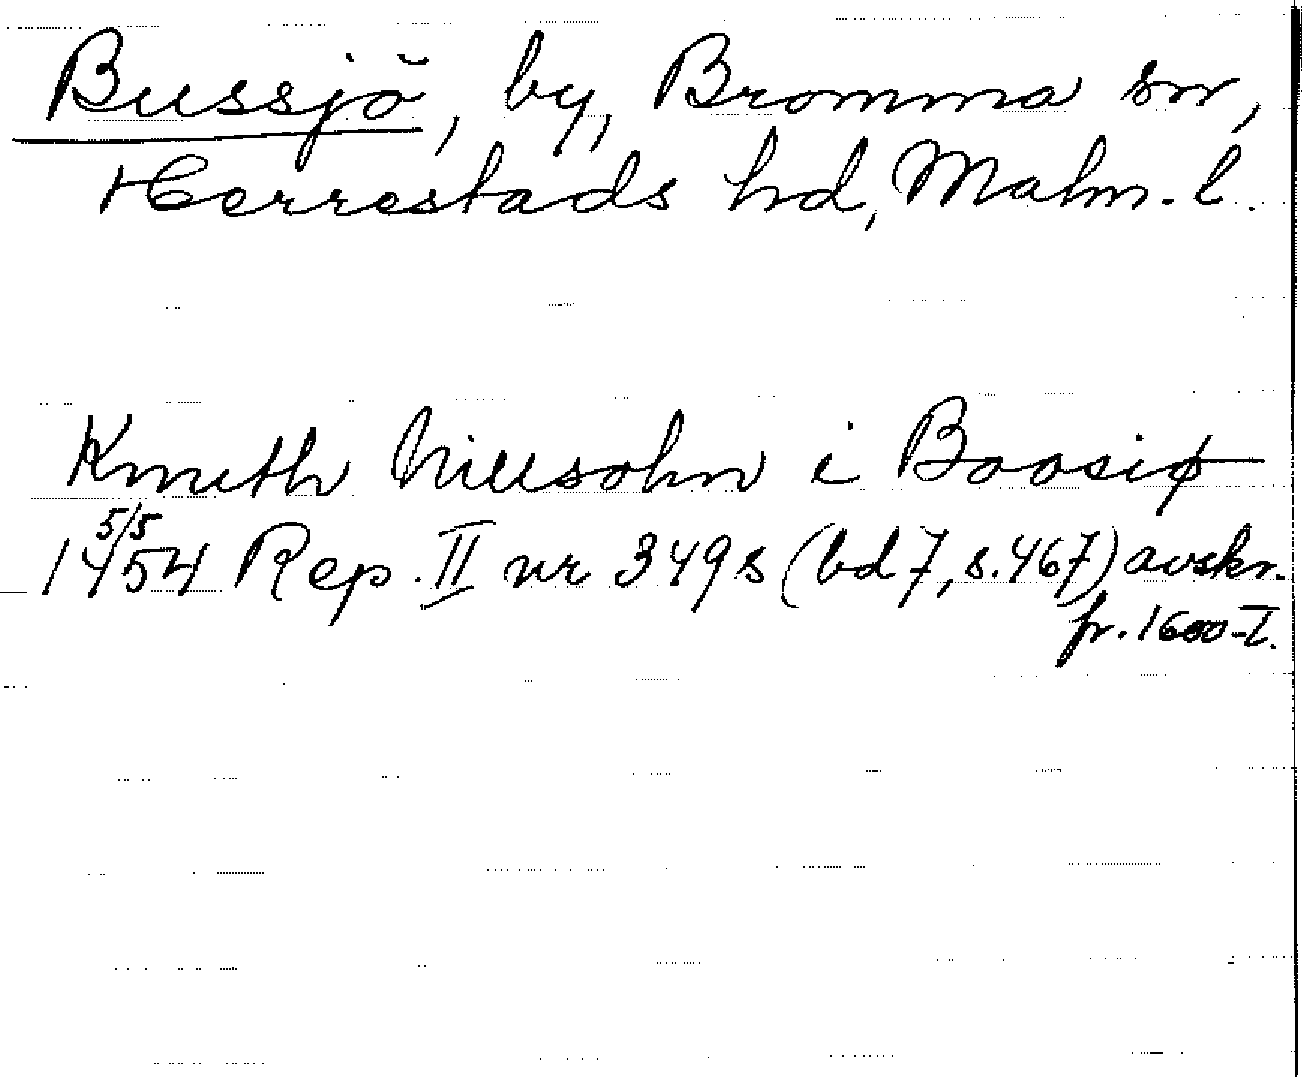 Bussjö, by, Bromma sn,
Herrestads hd, Malm. l.
Knuth Nillsohn i Boosiø
5/5
1454 Rep. II nr 349s (bd 7, s. 467) avskr.
fr. 1600-T.